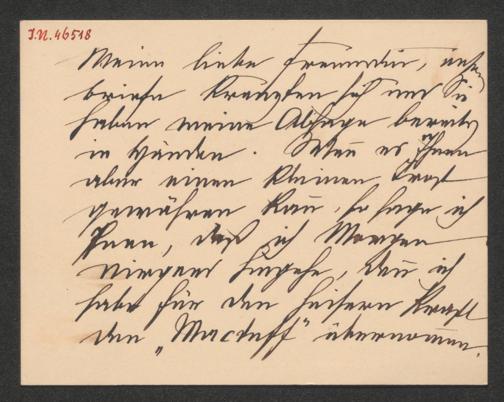 J.N. 46518
Meine liebe Freundin, unsre
briefe kreuzten sich und Sie
haben meine Absage bereits
in Händen. Wenn es Ihnen
aber einen kleinen Trost
gewähren kann, so sage ich
Ihnen, daß ich Morgen
nirgens hingehe, denn ich
habe für den heisern Krast
den „Macduff" übernommen.